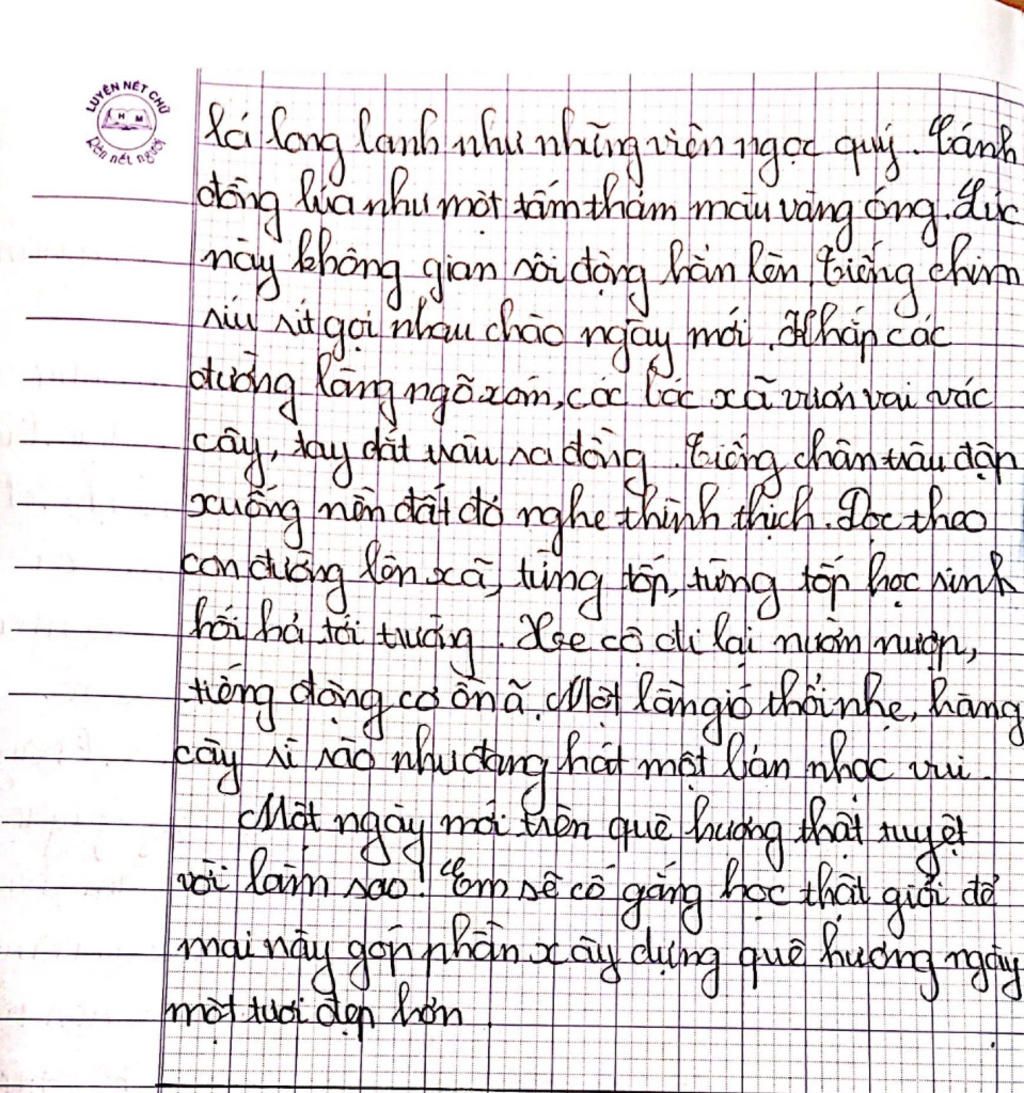 LUYỆN NÉT CHỮ
H M
Rèn nét người
lá long lanh như những viên ngọc quý. Cánh
đồng lúa như một tấm thảm màu vàng óng. Lúc
này không gian sôi động hẳn lên, tiếng chim
ríu rít gọi nhau chào ngày mới. Khắp các
đường làng ngõ xóm, các bác xã vươn vai vác
cây, tay dắt trâu ra đồng. Tiếng chân trâu đập
xuống nền đất đỏ nghe thình thịch. Dọc theo
con đường lên xã, từng tốp, từng tốp học sinh
hối hả tới trường. Xe cộ đi lại nườm nượp,
tiếng động cơ ồn ã. Một làn gió thổi nhẹ, hàng
cây rì rào như đang hát một bản nhạc vui.
Một ngày mới trên quê hương thật tuyệt
vời làm sao! Em sẽ cố gắng học thật giỏi để
mai này góp phần xây dựng quê hương ngày
một tươi đẹp hơn.